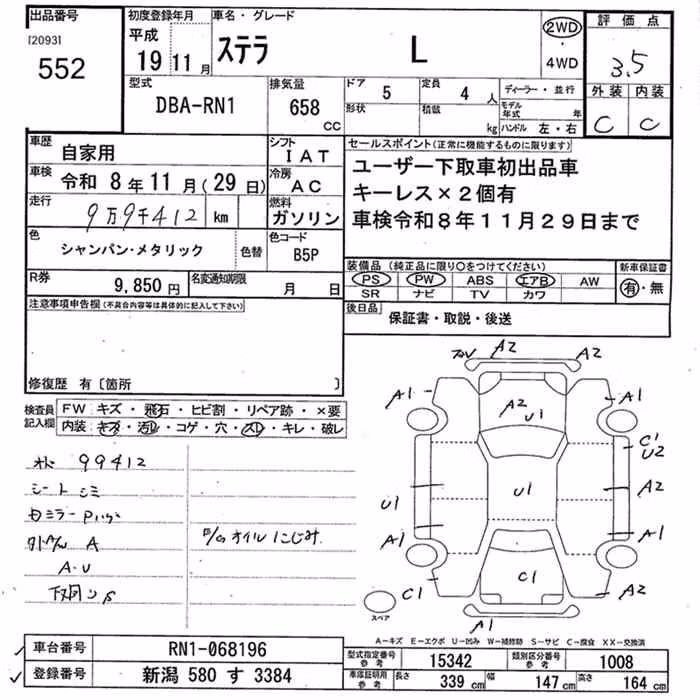 出品番号
[2093]
552
初度登録年月
平成
19 11 月
車名・グレード
ステラ L
2WD
・
4WD
評価点
3.5
外装 内装
C C
型式
DBA-RN1
排気量
658
CC
ドア
5
定員
4 人
形状
積載
kg
ディーラー・並行
モデル年式 年
ハンドル 左・右
車歴
自家用
シフト
IAT
車検
令和 8年 11月(29日)
冷房
AC
走行
9万9千412 km
燃料
ガソリン
色
シャンパン・メタリック
色替
色コード
B5P
R券
9,850円
名変通知期限
月 日
セールスポイント(正常に機能するものに限ります)
ユーザー下取車初出品車
キーレス×2個有
車検令和8年11月29日まで
装備品(純正品に限り〇をつけてください)
新車保証書
PS PW ABS エアB AW
SR ナビ TV カワ
有・無
後日品
保証書・取説・後送
注意事項申告欄(不具合内容等は具体的に記入して下さい)
修復歴 有〔箇所 〕
検査員記入欄
FW:キズ・飛石・ヒビ割・リペア跡・×要
内装:キズ・汚レ・コゲ・穴・スレ・キレ・破レ
99412
シート シミ
A
A・U
下回り S
オイルにじみ
A2
A2
A1
A1
A2
U1
C1
U2
U1
U1
A2
A1
A1
C1
C1
A2
A1
スペア
A-キズ E-エクボ U-凹み W-補修跡 S-サビ C-腐食 XX-交換済
車台番号
RN1-068196
登録番号
新潟 580 す 3384
型式指定番号
参考
15342
類別区分番号
参考
1008
車庫証明用
参考
長さ
339 cm
幅
147 cm
高さ
164 cm